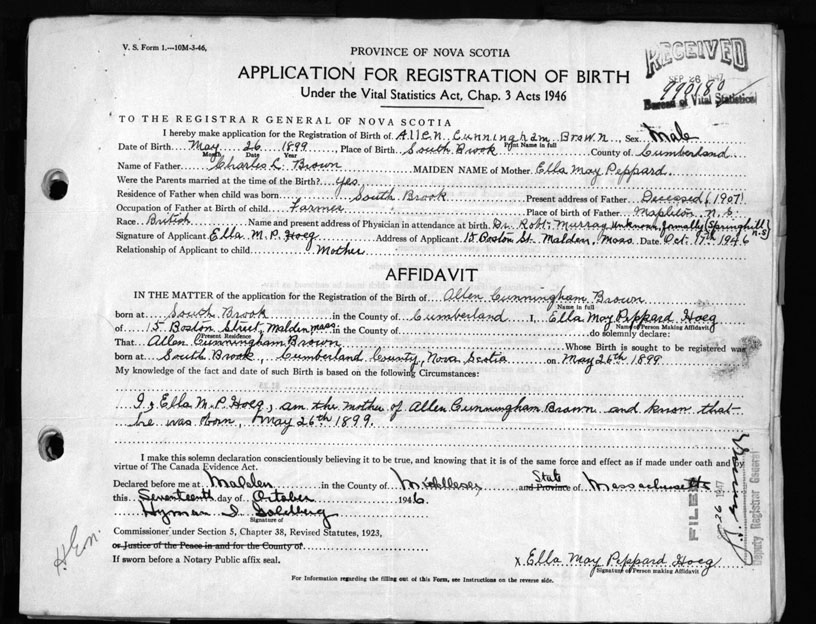 V. S. Form 1.—10M-3-46.
PROVINCE OF NOVA SCOTIA
RECEIVED
SEP 26 1947
990180
Bureau of Vital Statistics
APPLICATION FOR REGISTRATION OF BIRTH
Under the Vital Statistics Act, Chap. 3 Acts 1946
TO THE REGISTRAR GENERAL OF NOVA SCOTIA
I hereby make application for the Registration of Birth of Allen Cunningham Brown, Sex Male
Print Name in full
Date of Birth May 26 1899, Place of Birth South Brook County of Cumberland
Month Date Year
Name of Father Charles L. Brown MAIDEN NAME of Mother Ella May Peppard
Were the Parents married at the time of the Birth? yes
Residence of Father when child was born South Brook Present address of Father Deceased (1907)
Occupation of Father at Birth of child Farmer Place of Birth of Father Mapleton N.S.
Race British Name and present address of Physician in attendance at birth Dr. Robt. Murray Unknown, formally (Springhill N.S)
Signature of Applicant Ella M. P. Hoeg Address of Applicant 15 Boston St. Malden, Mass. Date Oct. 17th 1946
Relationship of Applicant to child Mother
AFFIDAVIT
IN THE MATTER of the application for the Registration of the Birth of Allen Cunningham Brown
Name in full
born at South Brook in the County of Cumberland I, Ella May Peppard Hoeg
Name of Person Making Affidavit
of 15 Boston Street, Malden Mass. in the County of do solemnly declare:
(Present Residence)
That Allen Cunningham Brown Whose Birth is sought to be registered was
born at South Brook, Cumberland County, Nova Scotia on May 26th 1899
My knowledge of the fact and date of such Birth is based on the following Circumstances:
I, Ella M. P. Hoeg, am the mother of Allen Cunningham Brown and know that
he was born, May 26th 1899.
I make this solemn declaration conscientiously believing it to be true, and knowing that it is of the same force and effect as if made under oath and by
virtue of The Canada Evidence Act.
Declared before me at Malden in the County of Middlesex and Province of State Massachusetts
this Seventeenth day of October 1946
Hyman I. Goldberg
Signature of
Commissioner under Section 5, Chapter 38, Revised Statutes, 1923,
or Justice of the Peace in and for the County of
If sworn before a Notary Public affix seal.
x Ella May Peppard Hoeg
Signature of Person making Affidavit
For Information regarding the filling out of this Form, see Instructions on the reverse side.
FILED
26 1947
Deputy Registrar General